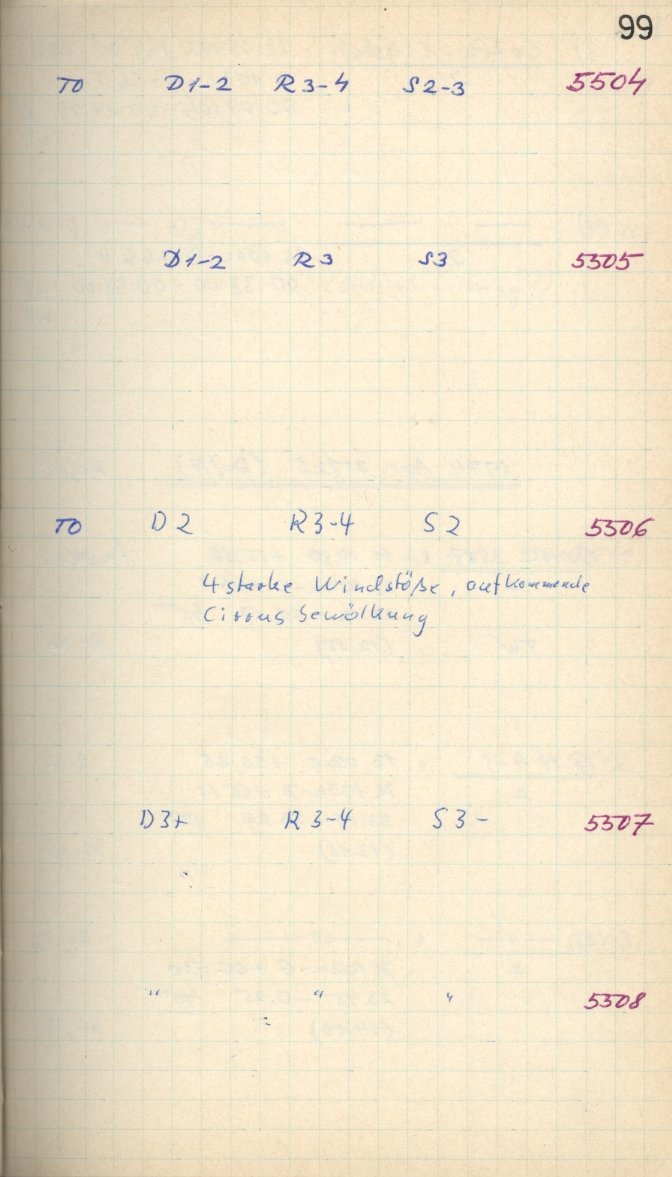 99
TO D1-2 R3-4 S2-3 5504
D1-2 R3 S3 5505
TO D2 R3-4 S2 5506
4 starke Windstöße, aufkommende
Cirrus bewölkung
D3+ R3-4 S3- 5507
" " " 5508